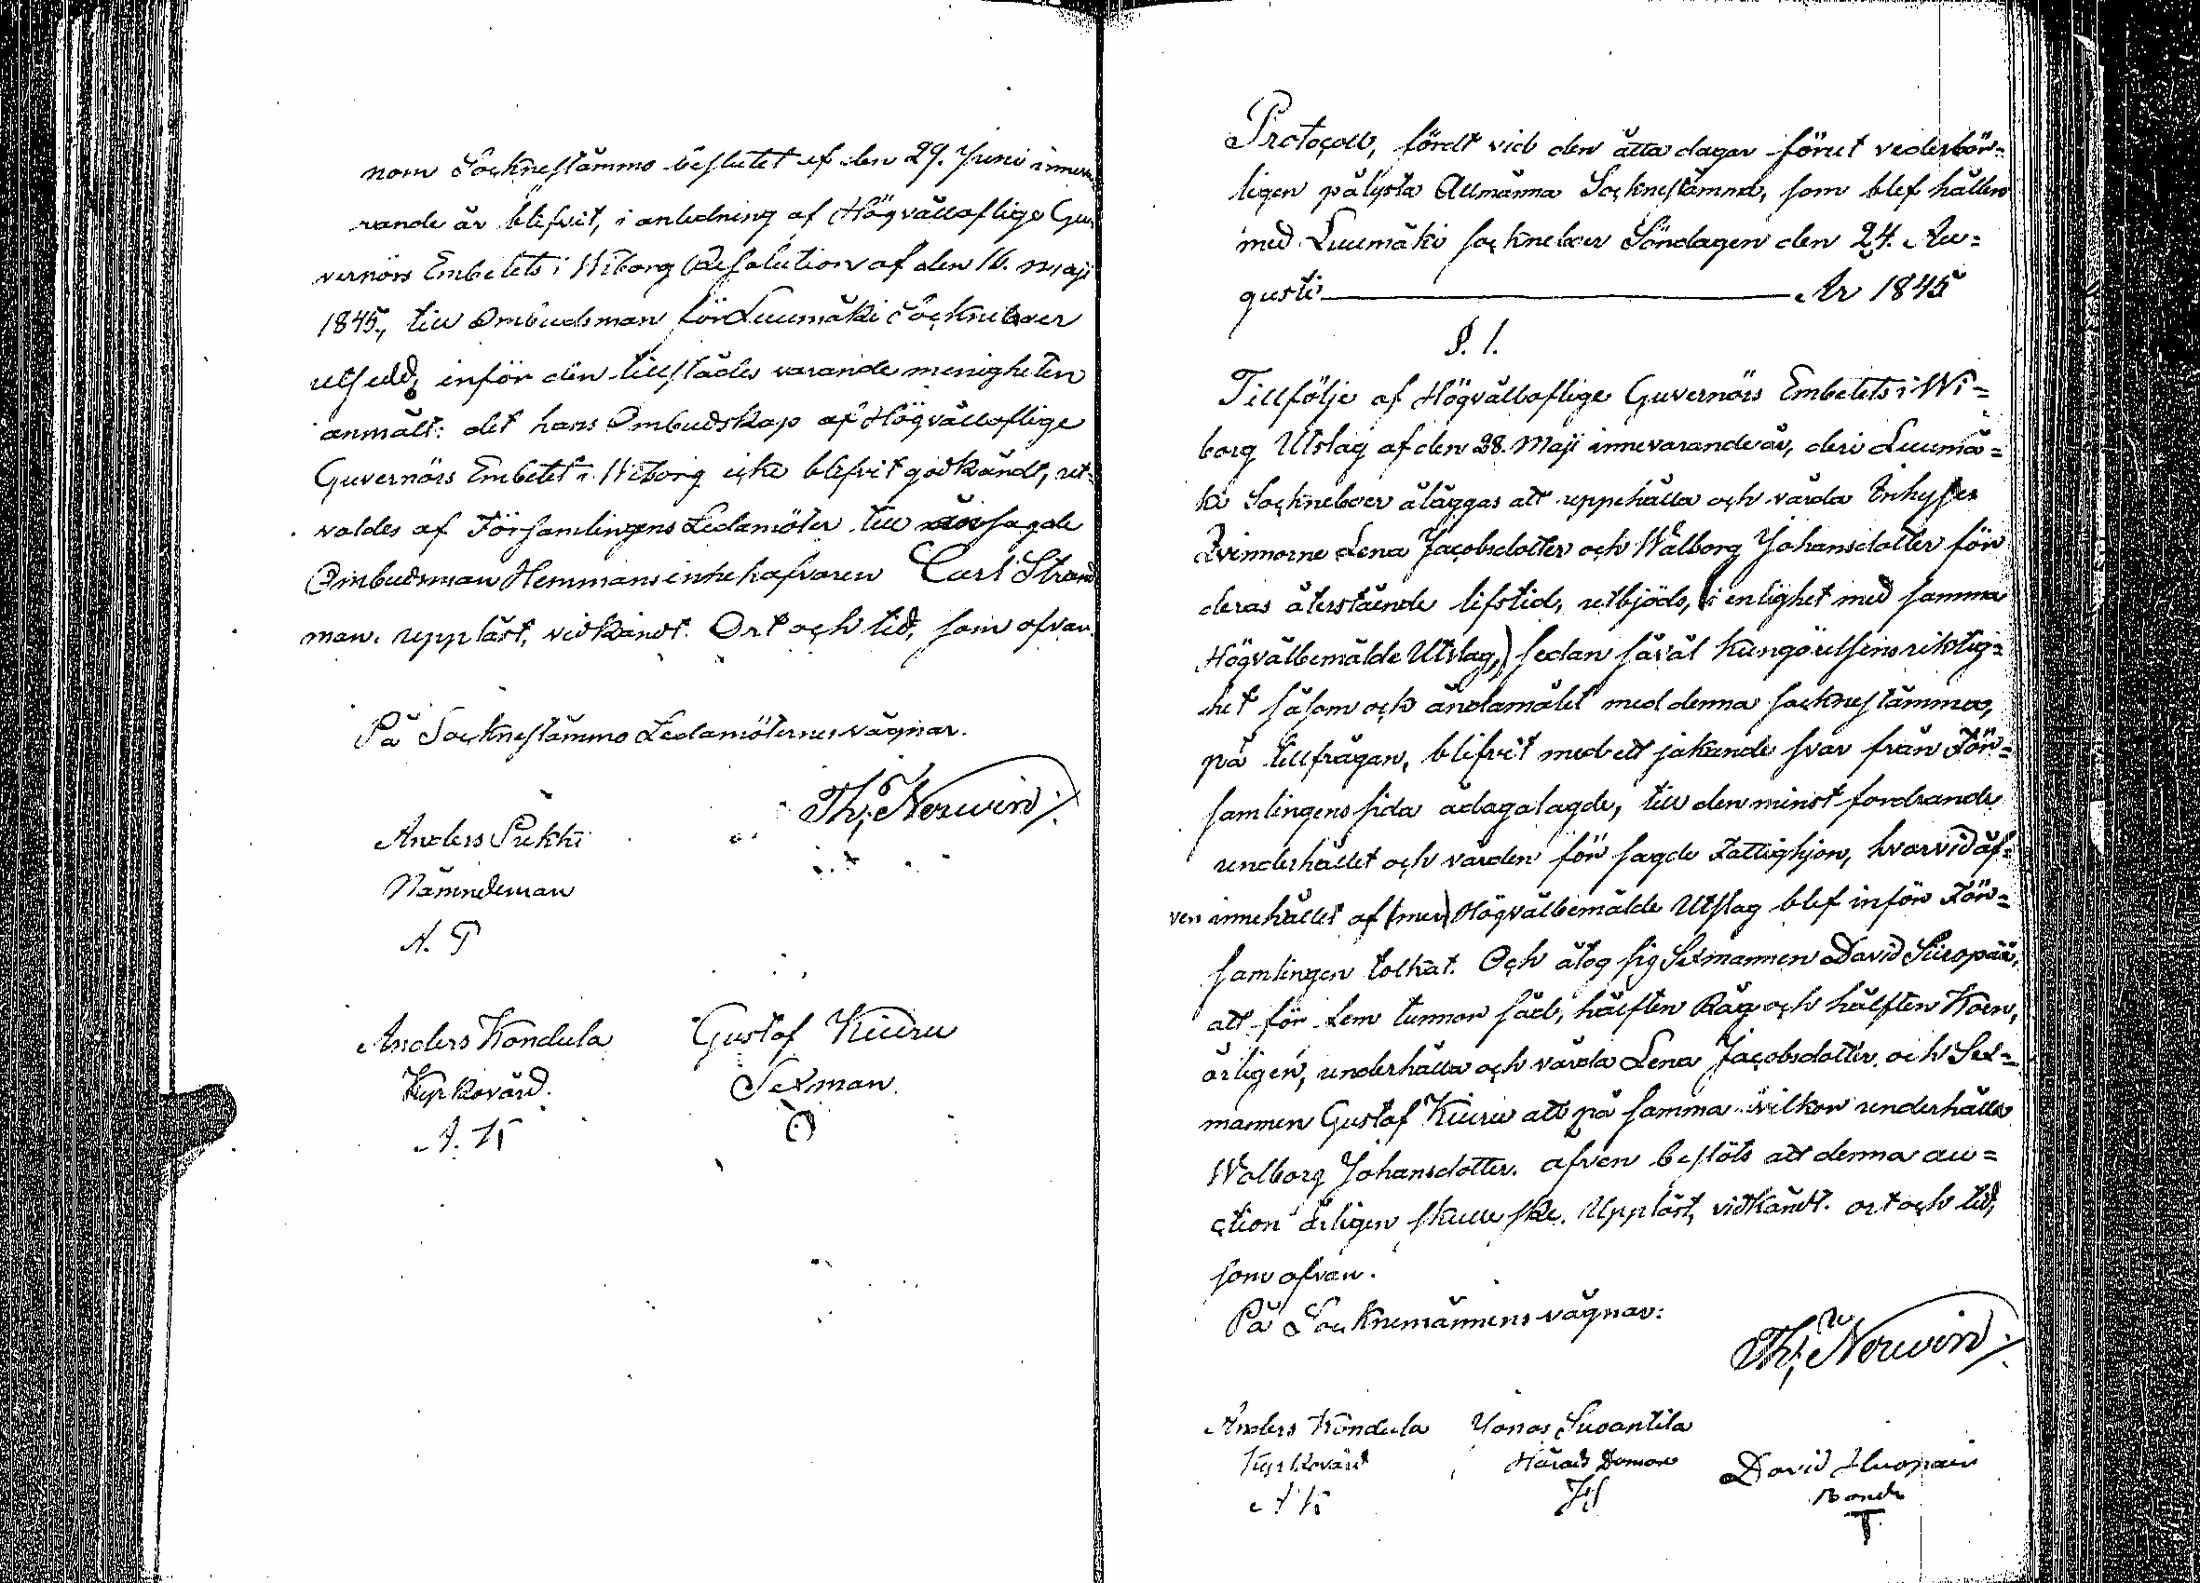 nom Sockne stämmo beslutet af den 29. Juni inneva
rande år blifvit, i anledning af Högvälloflige Gu
vernörs Embetets i Wiborg Resolution af den 16. Maji
1845., till Ombudsman för Luumäki Socknéboer
utsedd, inför den tillstädes varande menigheten
anmält: det hans Ombudskap af Högvälloflige
Guvernörs Embetet i Wiborg icke blefvit godkändt, ut-
valdes af Församlingens Ledamöter till sagde
Ombudsman Hemmansinnehafvaren Carl Strand
man. uppläst, vidkändt. Ort och tid, som ofvan.
På Socknestämmo Ledamöternes vägnar.
Th; Norwin
Anders Pukki
Nämndeman
A. P
Anders Kondula Gustof Kiuru
Kyrkovärd. Sexman.
A. K
Protocoll, fördt vid den åtta dagar förut vederbör=
ligen pålysta Allmänna Socknestämma, som blef hållen
med Luumäki Sockneboer Söndagen den 24. Au=
gusti År 1845
§. 1.
Tillfölje af Högvälloflige Guvernörs Embetets i Wi=
borg Utslag af den 28. Maji innevarande år, deri Luumä=
ki Sockneboer åläggas att uppehålla och vårda Inhyses
Qvinnorne Lena Jacobsdotter och Walborg Johansdotter för
deras återstående lifstid, utbjöds, (i enlighet med samma
Högvälbemälde Utslag,) sedan såväl kungörelsens riktig=
het såsom och ändamålet med denna socknestämma,
på tillfrågan, blifvit med ett jakande svar från För=
samlingens sida ådagalagde, till den minst fordrande
underhållet och vården för sagde Fattighjon, hvarvid äf=
ven innehållet af (mer) Högvälbemälde Utslag blef inför För=
samlingen tolkat. Och åtog sig Sexmannen David Suopää,
att för fem tunnor säd, hälften Råg och hälften Korn,
årligen, underhålla och vårda Lena Jacobsdotter, och Sex=
mannen Gustaf Kiuru att på samma vilkor underhålla
Walborg Johansdotter. afven beslöts att denna au=
ction årligen skulle ske. Uppläst, vidkändt. ort och tid,
som ofvan.
På Socknemännens vägnar:
Th; Norwin
Anders Kondula Jonas Suoantila
Kyrkovärd Härads Domare David Huopain
A K JS Bonde
T